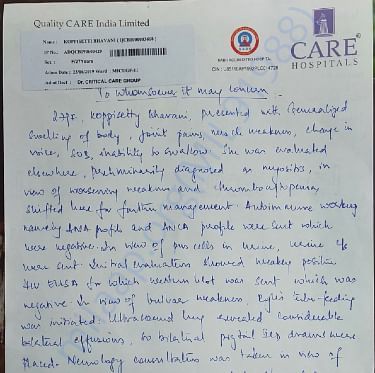 Quality CARE India Limited
Name : KOPPISETTI BHAVANI
IP No.
Sex : F/27Years
Admn Dated : 23/08/2019 Ward : MICU
Admit Doct : Dr. CRITICAL CARE GROUP
CARE
HOSPITALS
To whomsoever it may concern
27yr, Koppisetty Bhavani, presented with Generalized
swelling of body, Joint pains, neck weakness, change in
voice, SOB, inability to swallow. She was evaluated
elsewhere, preliminarily diagnosed as myositis, in
view of worsening weakness and thrombocytopenia,
shifted here for further management. Autoimmune workup
namely ANA profile and ANCA profile were sent which
were negative. In view of pus cells in urine, urine c/s
were sent. Initial evaluation showed weakly positive
HIV ELISA for which western blot was sent which was
negative. In view of bulbar weakness, Ryle's tube feeding
was initiated. Ultrasound lung revealed considerable
bilateral effusions, so bilateral pigtail ICD drains were
placed. Neurology consultation was taken in view of